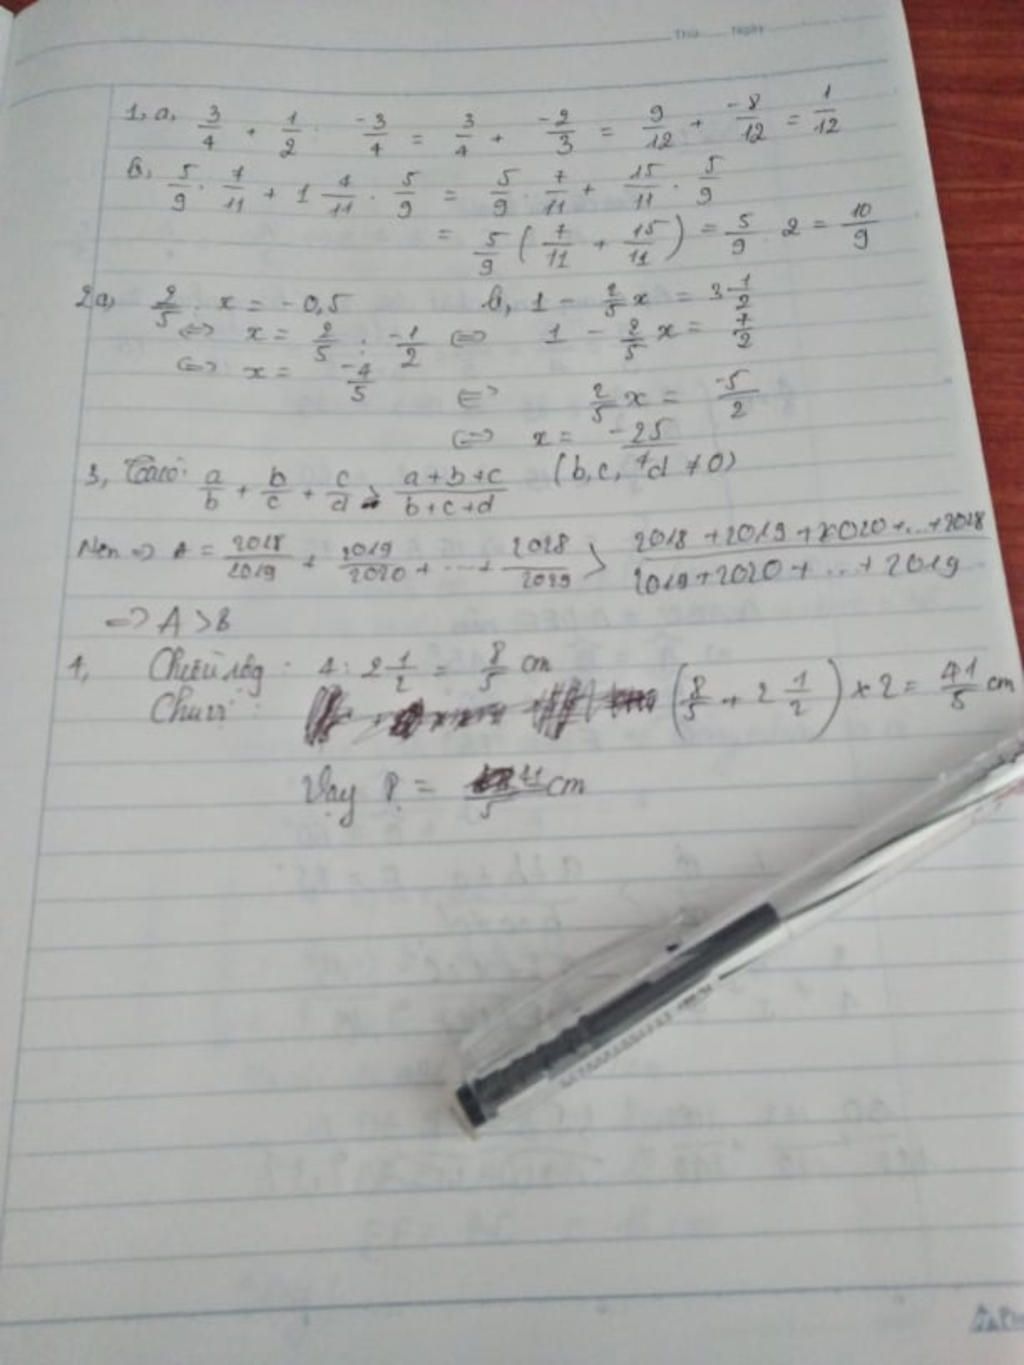 Thứ Ngày
1, a, 3/4 + 1/2 : -3/4 = 3/4 + -2/3 = 9/12 + -8/12 = 1/12
b, 5/9 . 7/11 + 1 4/11 . 5/9 = 5/9 . 7/11 + 15/11 . 5/9
= 5/9 ( 7/11 + 15/11 ) = 5/9 . 2 = 10/9
2a, 2/5 : x = -0,5 b, 1 - 2/5 x = 3 1/2
<=> x = 2/5 : -1/2 <=> 1 - 2/5 x = 7/2
<=> x = -4/5
<=> 2/5 x = -5/2
<=> x = -25/4
3, Ta có: a/b + b/c + c/d > a+b+c/b+c+d (b, c, d ≠ 0)
Nên => A = 2018/2019 + 2019/2020 + ... + 2028/2029 > 2018 + 2019 + 2020 + ... + 2028/2019 + 2020 + ... + 2019
=> A > B
4, Chiều rộng : 4 : 2 1/2 = 8/5 cm
Chu vi : (8/5 + 2 1/2) x 2 = 41/5 cm
Vậy P = 41/5 cm